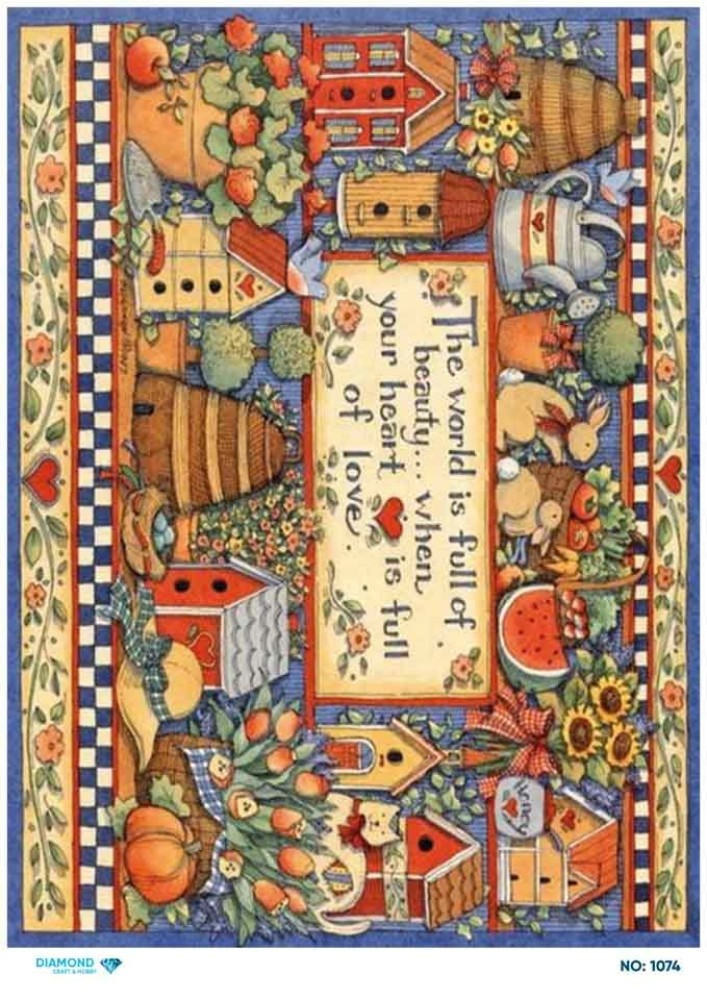 The world is full of
beauty... when
your heart is full
of love.
Honey
DIAMOND
CRAFT & HOBBY
NO: 1074